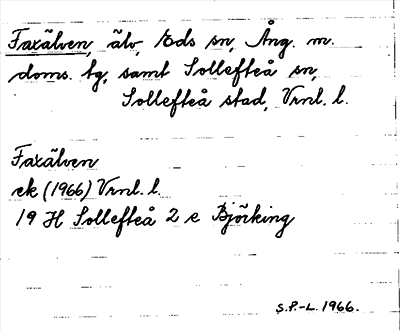 Faxälven, älv, Eds sn, Ång. m.
doms. tg, samt Sollefteå sn,
Sollefteå stad, Vrnl. l.
Faxälven
ek (1966) Vrnl. l.
19 H Sollefteå 2 e Björking
S.P.-L. 1966.